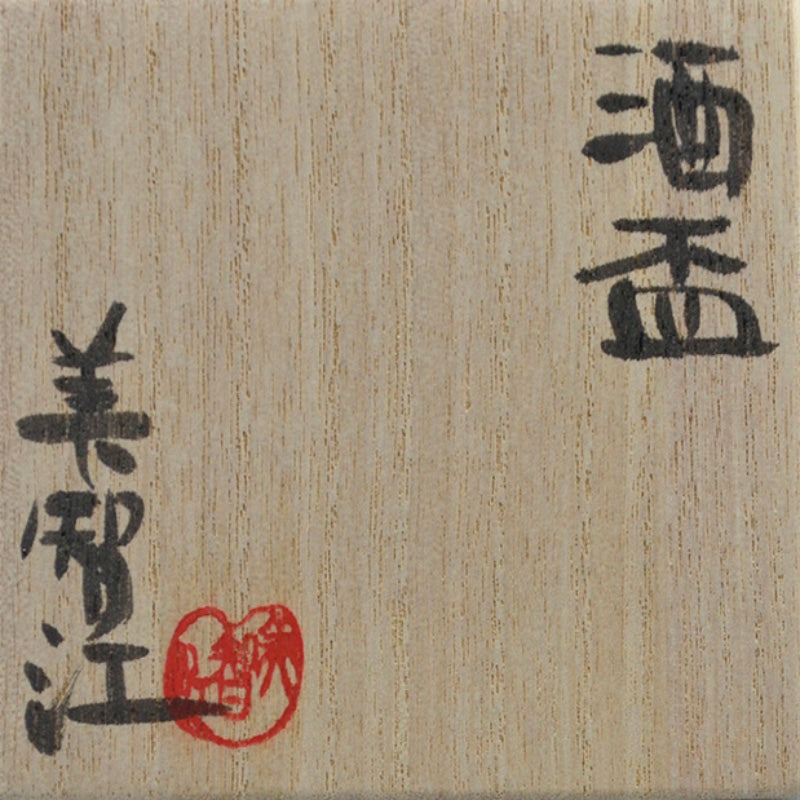 酒盃
美智江